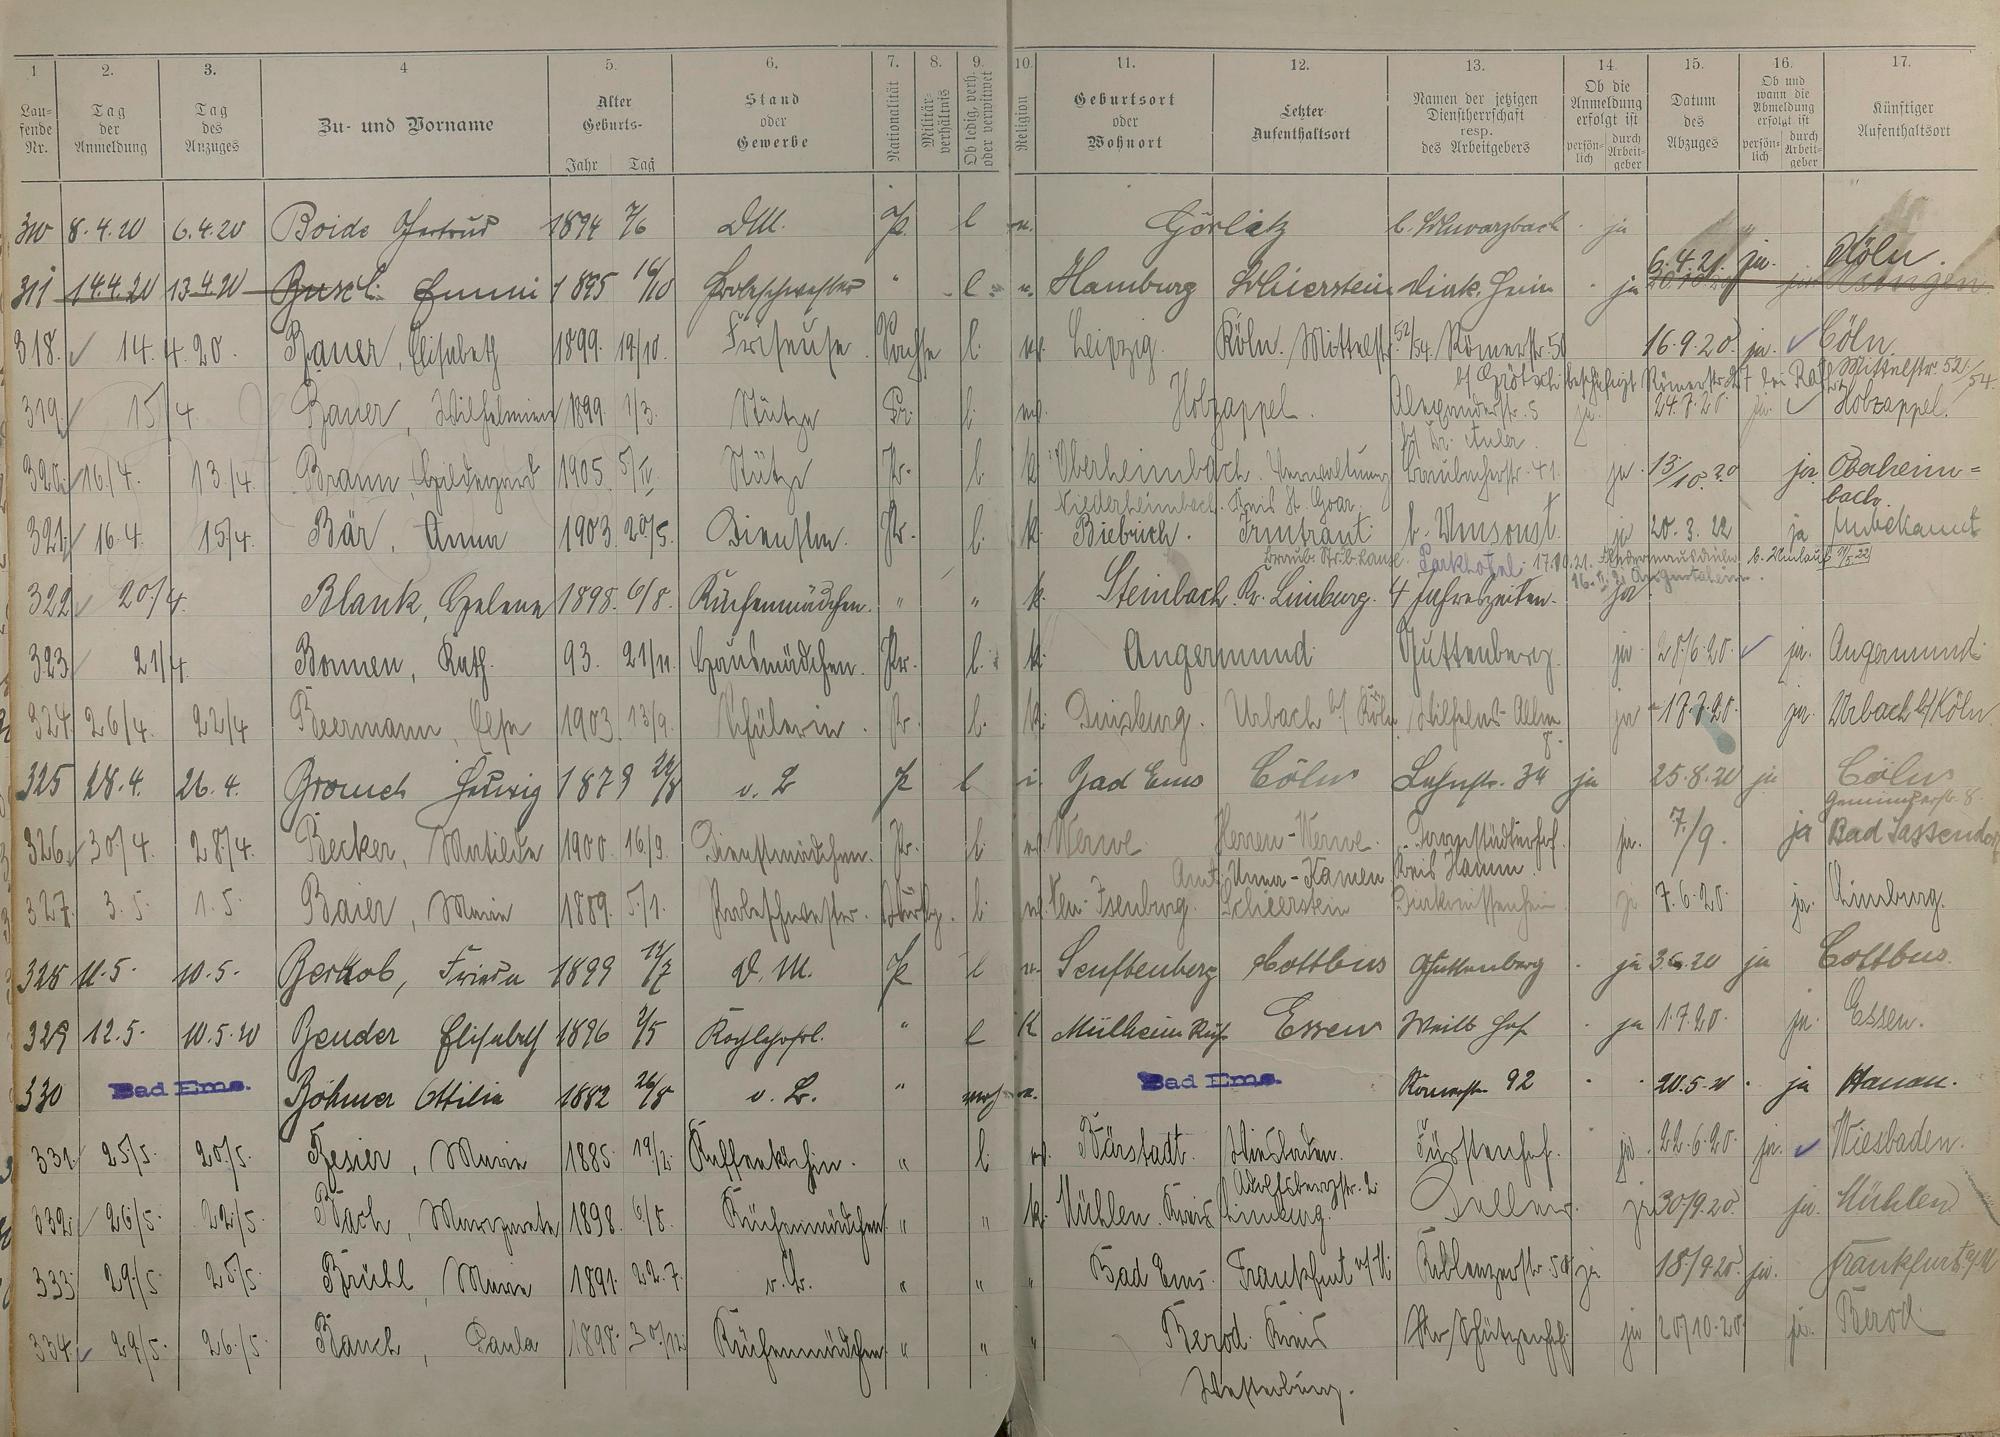 1 2. 3. 4 5. 6. 7. 8. 9. 10. 11. 12. 13. 14. 15. 16. 17.
Laufende Nr. Tag der Anmeldung Tag des Anzuges Zu- und Vorname Alter Geburts- Jahr Tag Stand oder Gewerbe Nationalität Militärverhältnis Ob ledig, verh. oder verwitwet Religion Geburtsort oder Wohnort Letzter Aufenthaltsort Namen der jetzigen Dienstherrschaft resp. des Arbeitgebers Ob die Anmeldung erfolgt ist persönlich durch Arbeitgeber Datum des Abzuges Ob und wann die Abmeldung erfolgt ist persönlich durch Arbeitgeber Künftiger Aufenthaltsort
8.4.20 6.4.20 Boide Gertrud 1894 7/6 DM. P l Görlitz b. Schwarzbach ja
6.4.21 ja. Köln.
311 14.4.20 13.4.20 Emmi 1895 16/10 Probeschwester " l Hamburg Schierstein Diak. Heim ja
318. 14.4.20. Bauer, Elisabeth 1899. 19/10. Friseuse. Sachse l. Leipzig. Köln. Mittelstr. 52/54. Römerstr. 50 16.9.20. ja. Cöln.
beschäftigt Mittelstr. 52/54.
319 15/4. Bauer, Wilhelmine 1899 1/3. Stütze Pr. l. Holzappel. Alexanderstr. 5 ja. 24.7.20. ja. Holzappel.
b/ Dr. Auler.
320. 16/4. 13/4. Braun, Hildegard 1905. Stütze Pr. l. k. Oberheimbach. Verwaltung Braubacherstr. 41. ja 13/10.20 ja. Oberheim=
Niederheimbach. Kreis St. Goar. bach
321. 16.4. 15/4. Bär, Anna 1903. 20/5. Dienstm. Pr. l. k. Biebrich. Irmtraut b. Umsonst. ja 20.3.22 ja Unbekannt
Parkhotel 17.10.21.
322 20/4. Blank, Helene 1898. 6/8. Küchenmädchen. " " k. Steinbach. Kr. Limburg. 4 Jahreszeiten. ja
323 21/4. Bonnen, Kath. 93. 21/11. Hausmädchen. Pr. l. k. Angermund Guttenberg. ja 28/6.20. ja. Angermund.
324. 26/4. 22/4 Beermann, 1903. 13/9. Schülerin. Pr. l. k. Duisburg. Urbach b/ Köln Wilhelms-Allee ja 18.7.20. ja. Urbach b/ Köln.
8.
325 28.4. 26.4. Hedwig 1879 P l i. Bad Ems Cöln Lahnstr. 34 ja 25.8.20 ja Cöln
326. 30/4. 28/4. Becker, Matilde 1900. 16/9. Dienstmädchen. Pr. l. Werve Herren-Werve. Darmstädterhof. ja. 7./9. ja Bad Sassendorf
Amt Unna-Kamen Kreis Hamm.
327. 3.5. 1.5. Baier, Marie 1889. 5/1. Probeschwester. l. Neu-Isenburg. Schierstein Diakonissenheim ja 7.6.20. ja. Limburg.
328 11.5. 10.5. Frieda 1899 D. M. P l Senftenberg Cottbus Guttenberg ja 3.6.20 ja Cottbus.
329 12.5. 10.5.20 Bender Elisabeth 1896 2/5 Kochlehrfrl. " l k Mülheim Ruhr Essen Weilb Hof ja 1.7.20. ja. Essen.
330 Bad Ems. Böhmer Ottilie 1882 26/8 o. B. " Bad Ems. Römerstr. 92 20.5.20 ja Hanau.
331. 25/5. 20/5. Besier, Marie 1885. 19/2. Kaffeeköchin. " l. Bärstadt. Wiesbaden. Fürstenhof. ja 22.6.20. ja. Wiesbaden.
Adolfsbergstr. 2.
332. 26/5. 22/5. Bach, Margarete 1898. 6/8. Küchenmädchen " " k. Mühlen. Kreis Limburg. ja 30/9.20. ja. Mühlen
333. 29/5. 25/5. Brühl, Marie 1891. 22.7. o. B. " " " Bad Ems. Frankfurt a/M. Koblenzerstr. 58 ja 18/9.20. ja. Frankfurt a/M
334. 29/5. 26./5. Bauch, Paula 1898. 30/12. Küchenmädchen " " " Berod. Kreis Schützenhof. ja 20/10.20. ja. Berod.
Westerburg.